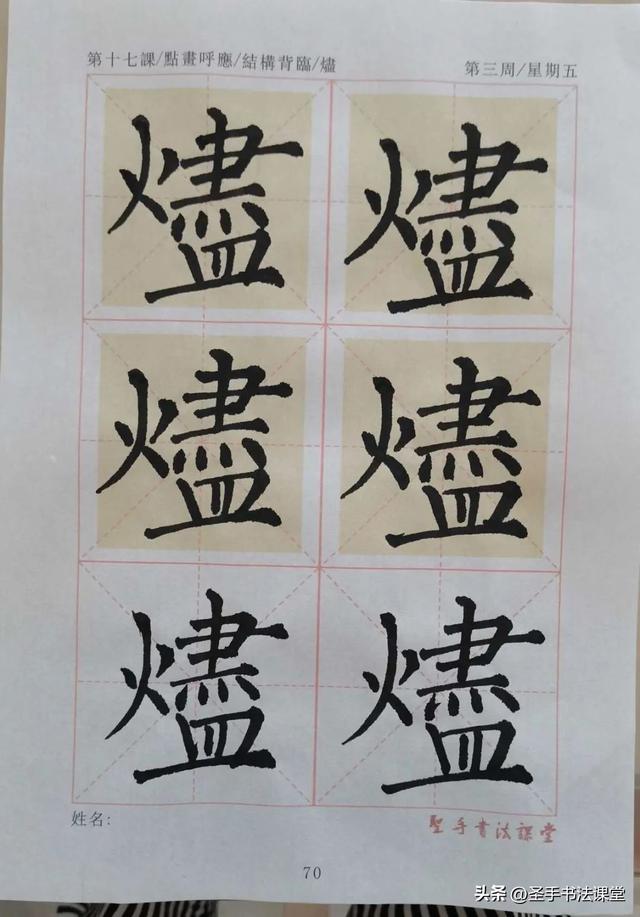 第十七課/點畫呼應/結構背臨/燼 第三周/星期五
燼 燼
燼 燼
燼 燼
姓名:
聖手書法課堂
70
头条 @圣手书法课堂